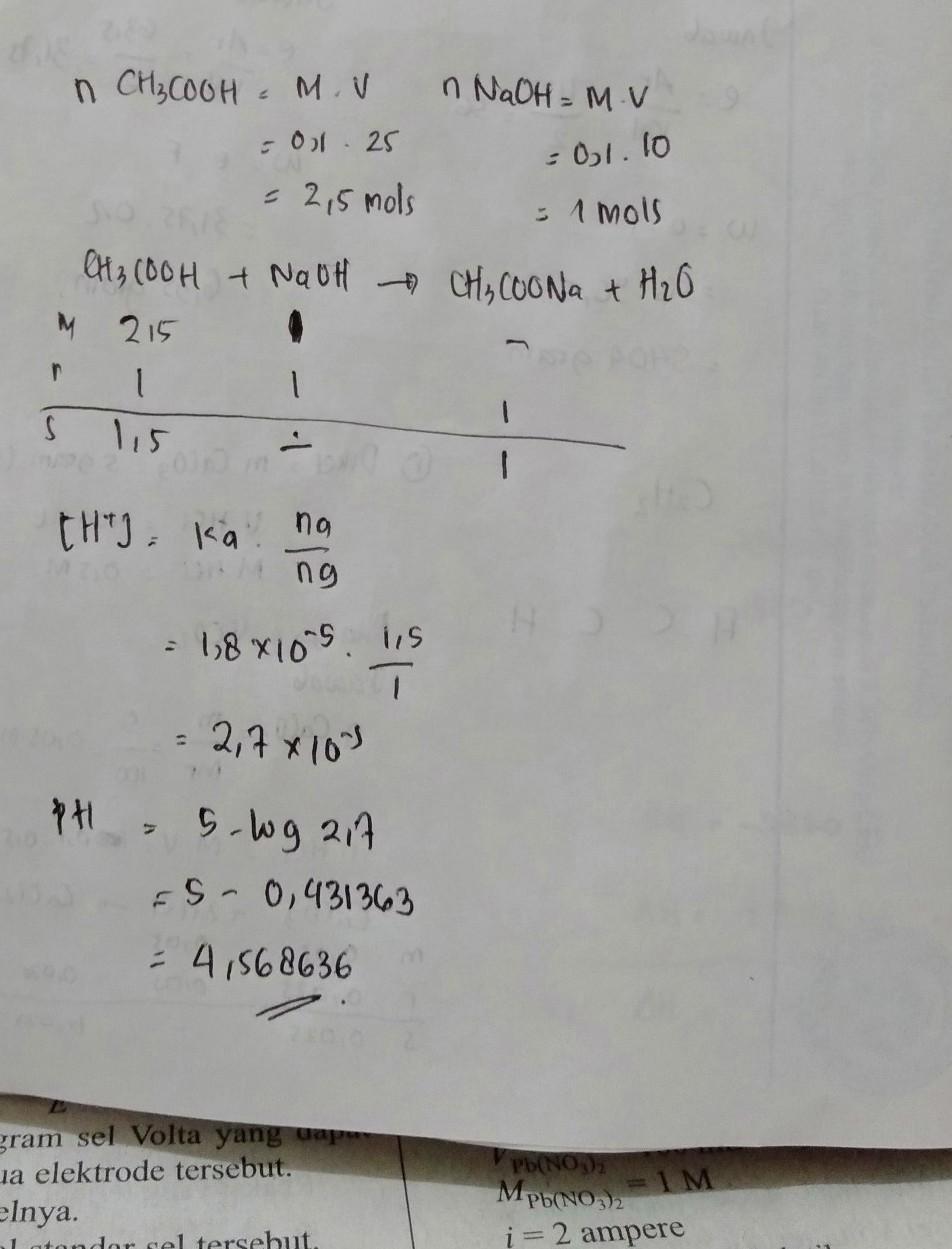 n CH₃COOH = M . V
= 0,1 . 25
= 2,5 mols
n NaOH = M.V
= 0,1 . 10
= 1 mols
CH₃COOH + NaOH → CH₃COONa + H₂O
M 2,5 -
r 1 1 1
S 1,5 - 1
[H⁺] = Ka . na/ng
= 1,8 × 10⁻⁵ . 1,5/1
= 2,7 × 10⁻⁵
pH = 5 - log 2,7
= 5 - 0,431363
= 4,568636
gram sel Volta yang
ua elektrode tersebut.
elnya.
sel tersebut.
V Pb(NO₃)₂
M Pb(NO₃)₂ = 1 M
i = 2 ampere